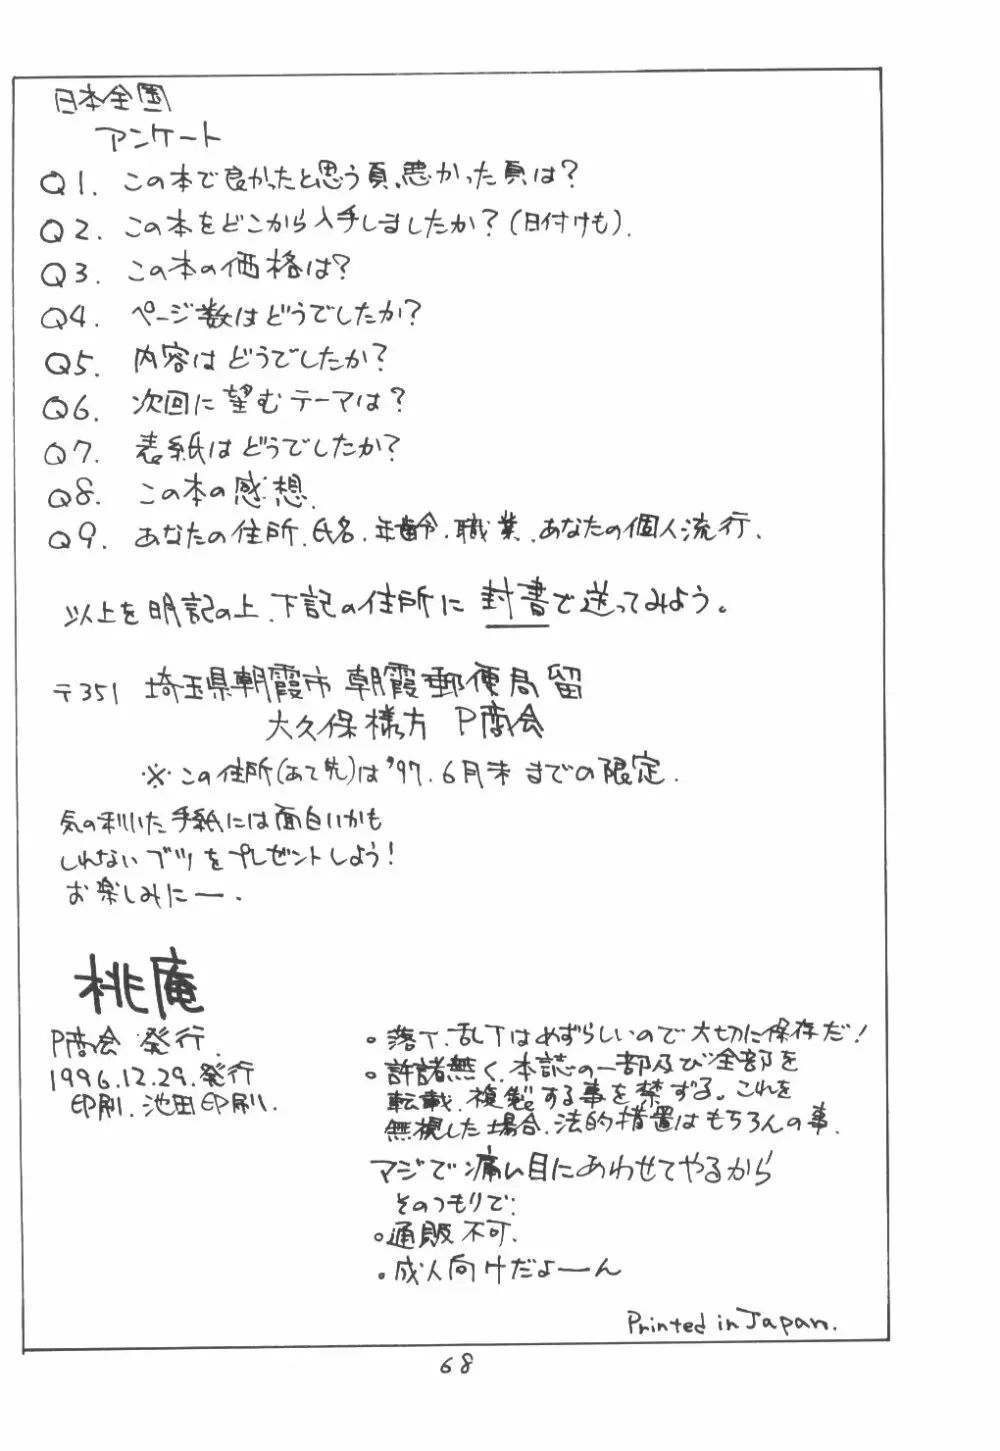 日本全国
アンケート
Q1. この本で良かったと思う頁、悪かった頁は?
Q2. この本をどこから入手しましたか?(日付けも).
Q3. この本の価格は?
Q4. ページ数はどうでしたか?
Q5. 内容はどうでしたか?
Q6. 次回に望むテーマは?
Q7. 表紙はどうでしたか?
Q8. この本の感想.
Q9. あなたの住所.氏名.年齢.職業.あなたの個人流行.
以上を明記の上、下記の住所に封書で送ってみよう。
〒351 埼玉県朝霞市朝霞郵便局留
大久保様方 P商会
※この住所(あて先)は'97.6月末までの限定.
気の利いた手紙には面白いかも
しれないブツをプレゼントしよう!
お楽しみにー.
桃庵
P商会 発行.
1996.12.29.発行
印刷.池田印刷.
。落丁.乱丁はめずらしいので大切に保存だ!
。許諾無く、本誌の一部及び全部を
転載.複製する事を禁ずる。これを
無視した場合.法的措置はもちろんの事.
マジで痛い目にあわせてやるから
そのつもりで:
。通販不可.
。成人向けだよーん
Printed in Japan.
68